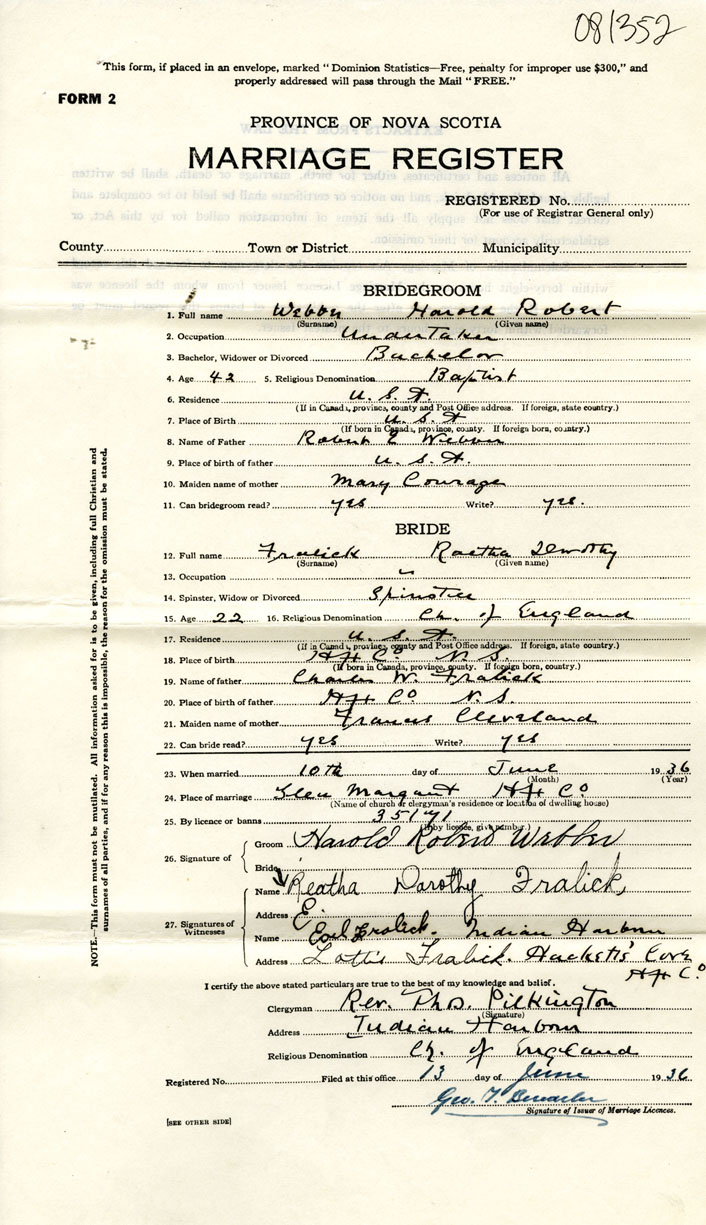 081352
"This form, if placed in an envelope, marked "Dominion Statistics—Free, penalty for improper use $300," and
properly addressed will pass through the Mail "FREE."
FORM 2
PROVINCE OF NOVA SCOTIA
MARRIAGE REGISTER
REGISTERED No.
(For use of Registrar General only)
County Town or District Municipality
BRIDEGROOM
1. Full name Webber Harold Robert
(Surname) (Given name)
2. Occupation Undertaker
3. Bachelor, Widower or Divorced Bachelor
4. Age 42 5. Religious Denomination Baptist
6. Residence U. S. A.
(If in Canada, province, county and Post Office address. If foreign, state country.)
7. Place of Birth U. S. A.
(If born in Canada, province, county. If foreign born, country.)
8. Name of Father Robert E Webber
9. Place of birth of father U. S. A.
10. Maiden name of mother Mary Courage
11. Can bridegroom read? yes Write? yes.
BRIDE
12. Full name Fralick Raetha Dorothy
(Surname) (Given name)
13. Occupation
14. Spinster, Widow or Divorced Spinster
15. Age 22 16. Religious Denomination Ch. of England
17. Residence U. S. A.
(If in Canada, province, county and Post Office address. If foreign, state country.)
18. Place of birth Hfx Co N. S.
(If born in Canada, province, county. If foreign born, country.)
19. Name of father Charles W. Fralick
20. Place of birth of father Hfx Co N. S.
21. Maiden name of mother Frances Cleveland
22. Can bride read? yes Write? yes
23. When married 10th day of June 1936
(Month) (Year)
24. Place of marriage Glen Margaret Hfx Co
(Name of church or clergyman's residence or location of dwelling house)
25. By licence or banns 35191
(If by licence, give number.)
26. Signature of
Groom Harold Robert Webber
Bride
27. Signatures of Witnesses
Name Reatha Dorothy Fralick,
Address E.
Name Earl Fralick. Indian Harbour
Address Lottie Fralick. Hackett's Cove
Hfx Co
I certify the above stated particulars are true to the best of my knowledge and belief.
Clergyman Rev. Thos. Pilkington
(Signature)
Address Indian Harbour
Religious Denomination Ch. of England
Registered No. Filed at this office 13 day of June 1936
Geo. T.
Signature of Issuer of Marriage Licences.
[SEE OTHER SIDE]
NOTE.—This form must not be mutilated. All information asked for is to be given, including full Christian and
surnames of all parties, and if for any reason this is impossible, the reason for the omission must be stated.